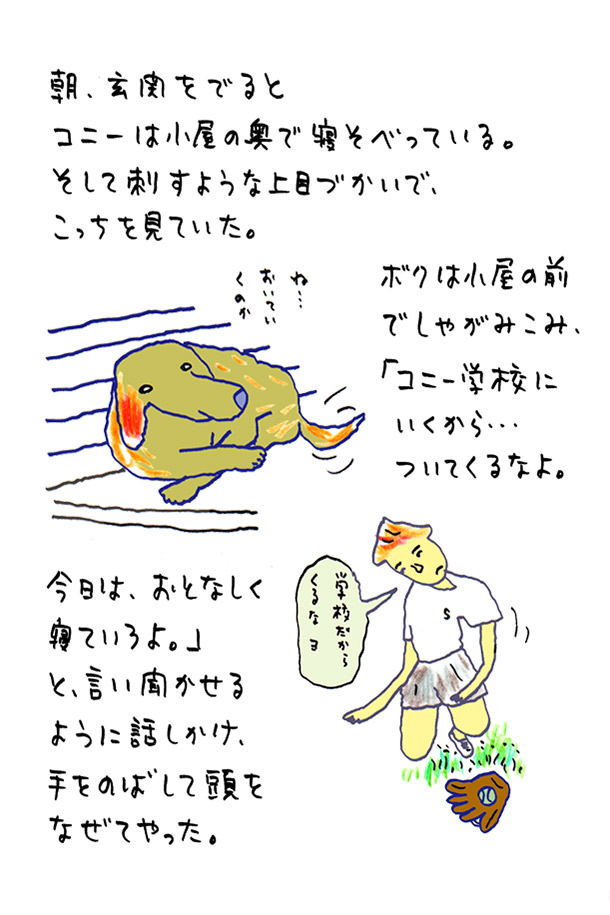 朝、玄関をでると
コニーは小屋の奥で寝そべっている。
そして刺すような上目づかいで、
こっちを見ていた。
ね…
おいてい
くのか
ボクは小屋の前
でしゃがみこみ、
「コニー学校に
いくから…
ついてくるなよ。
今日は、おとなしく
寝ていろよ。」
と、言い聞かせる
ように話しかけ、
手をのばして頭を
なぜてやった。
学校だから
くるなヨ
S